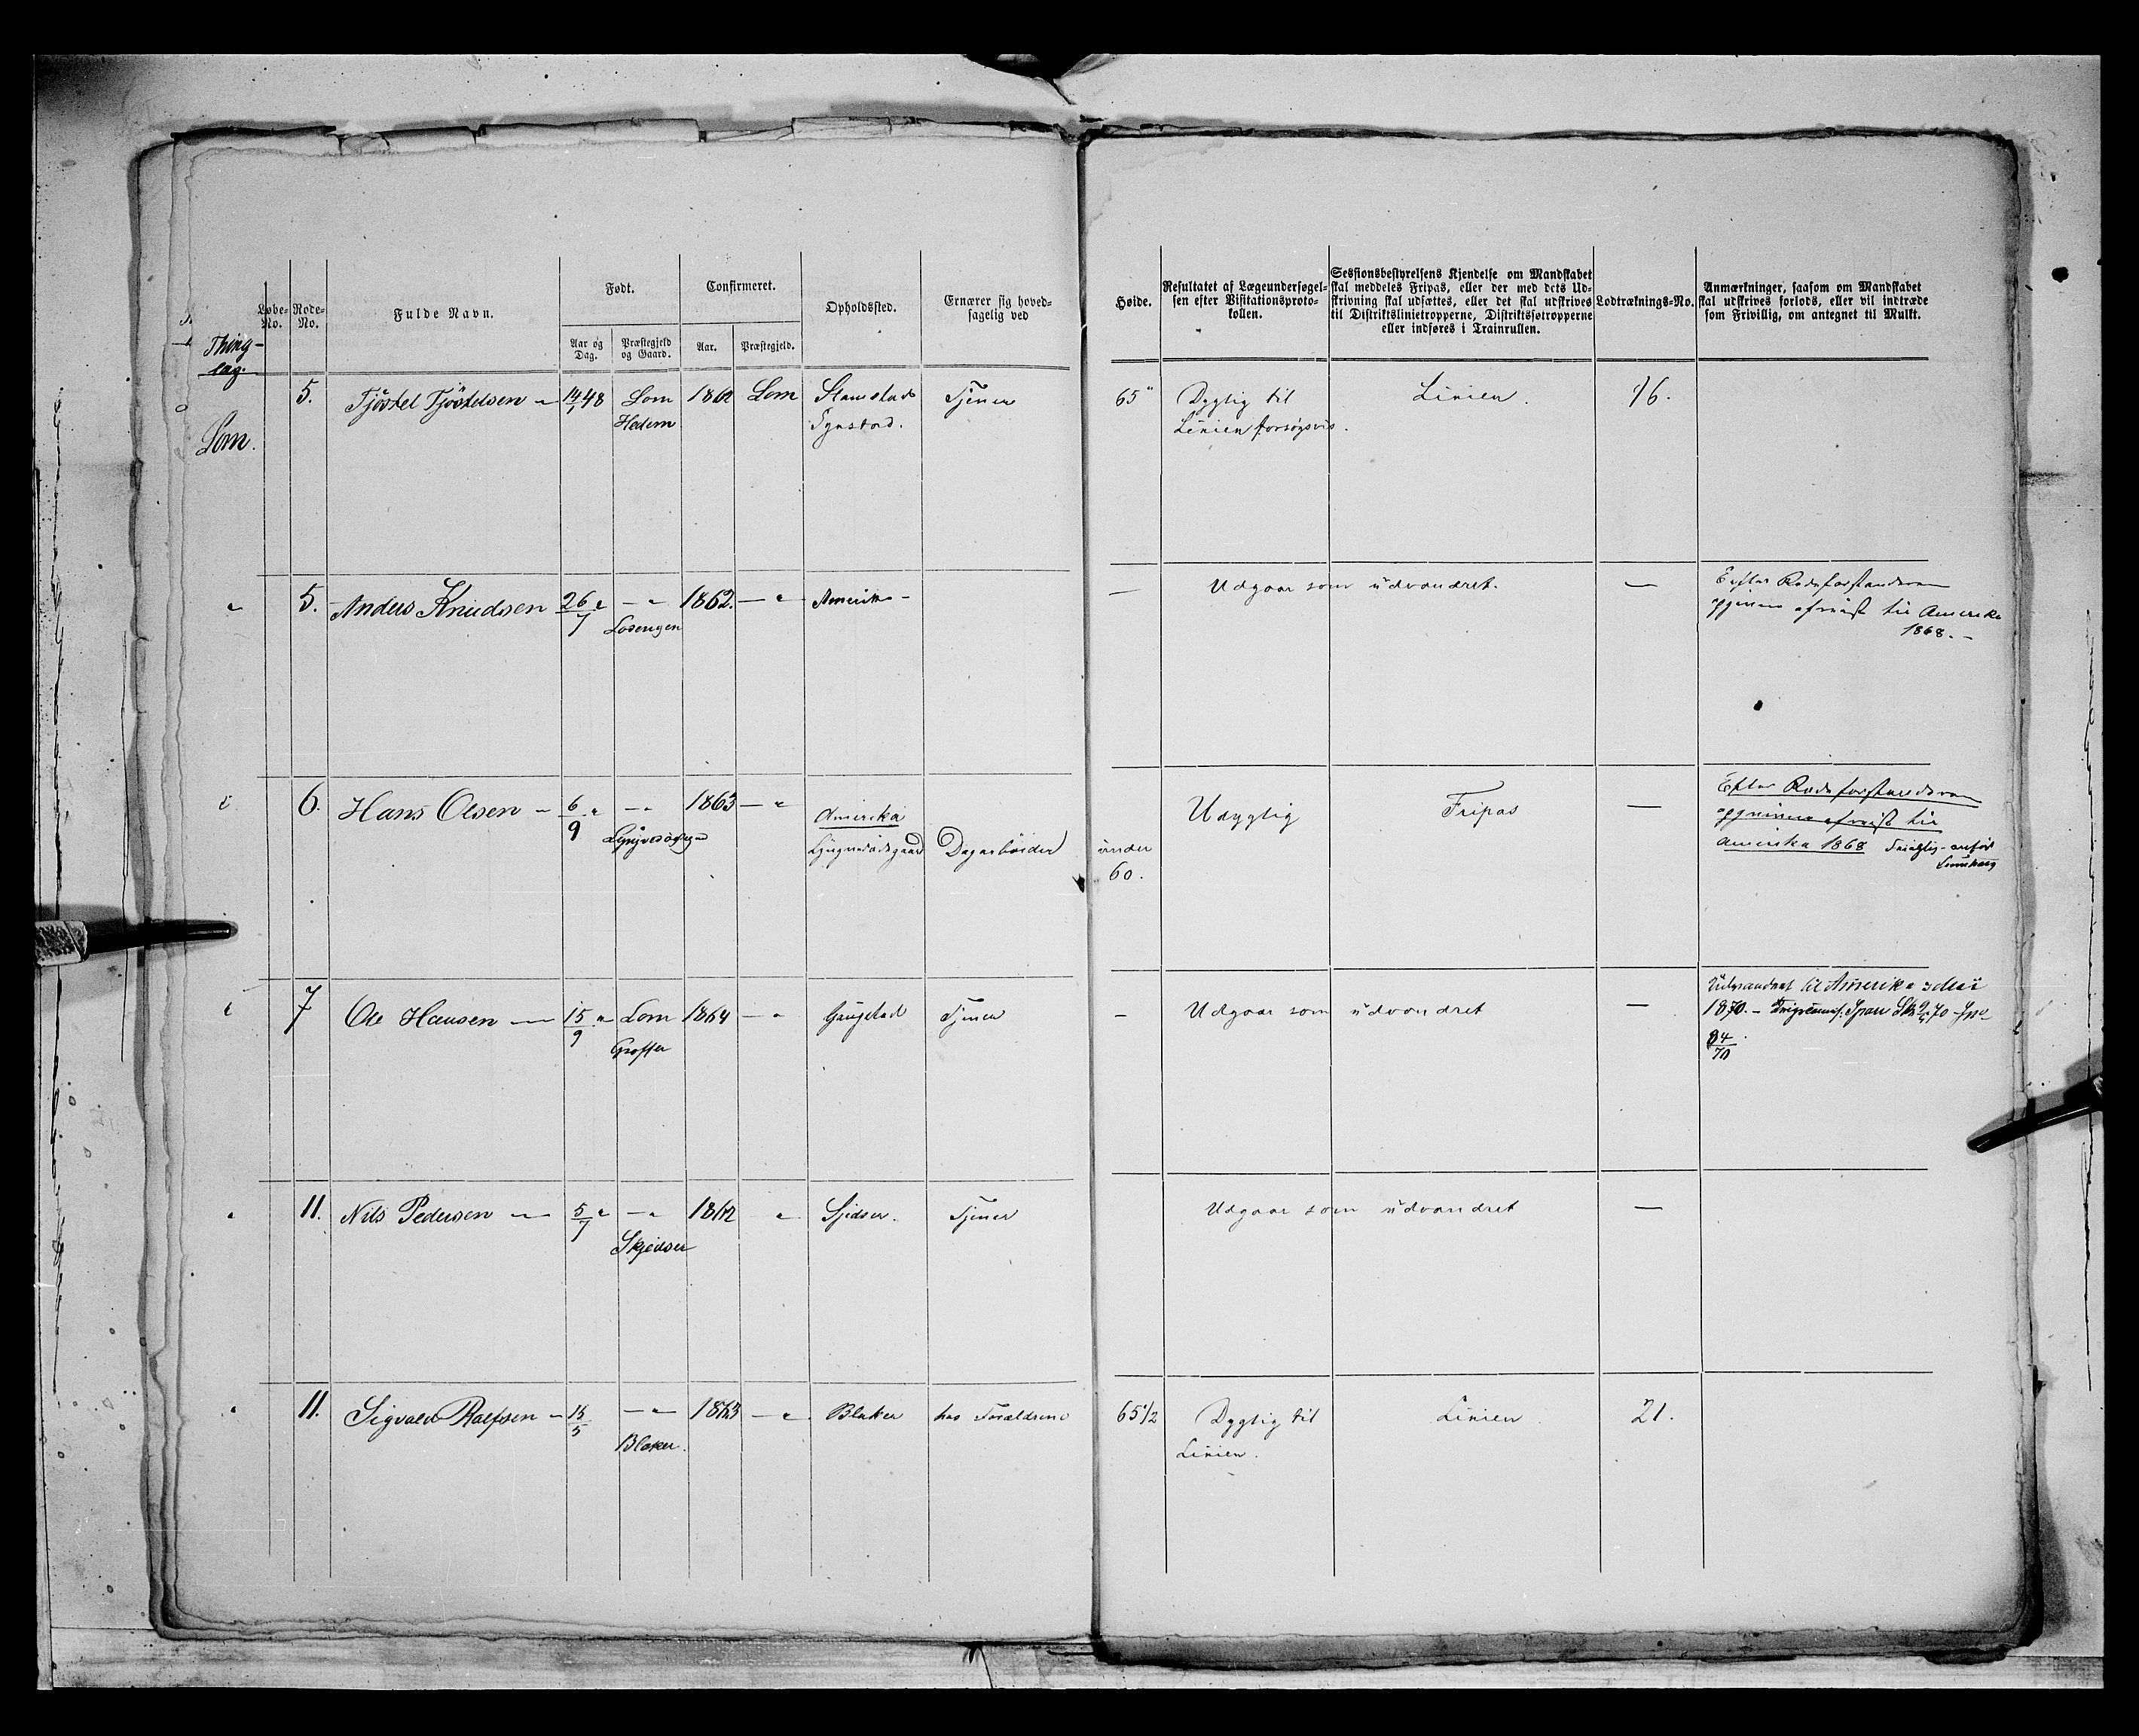 Thing-
lag.
Løbe-No.
Rode-No.
Fulde Navn.
Født.
Aar og Dag.
Præstegjeld og Gaard.
Confirmeret.
Aar.
Præstegjeld.
Opholdssted.
Ernærer sig hoved-
sagelig ved
Høide.
Resultatet af Lægeundersøgel-
sen efter Visitationsproto-
kollen.
Sessionsbestyrelsens Kjendelse om Mandskabet
skal meddeles Fripas, eller der med dets Ud-
skrivning skal udsættes, eller det skal udskrives
til Distriktslinietropperne, Distriktsfotropperne
eller indføres i Trainrullen.
Lodtræknings-No.
Anmærkninger, saasom om Mandskabet
skal udskrives forlods, eller vil indtræde
som Frivillig, om antegnet til Mulkt.
Lom.
5. Tjøstel Tjøstelsen – 14/1 48 Lom 1862 Lom Stamstad Tjener 65" Dygtig til Linien. 16.
Hedem Synstad. Linien forsøgsvis.
" 5. Anders Knudsen 26/7 " – " 1862. – " Amerika – — Udgaar som udvandret. — Efter Rodeforstanderens
Losengen opgivende afreist til Amerika
1868. –
6. Hans Olsen – 6/9 " – " 1863 – " Amerika Dagarbeider under 60. Udygtig Fripas — Efter Rodeforstanderens
opgivende afreist til
Amerika 1868
7 Ole Hansen — 15/9 " Lom 1864 – " Gaugstad Tjener – Udgaar som udvandret — Udvandret til Amerika
Graffer 1870. –
84/70
" 11. Nils Pedersen — 5/7 " – " 1862 " Sjedser. Tjener Udgaar som udvandret —
Skjedser
" 11. Sigvald Rolfsen – 15/5 – " 1863 – " Blaker hos Forældrene 65 1/2 Dygtig til Linien. 21.
Blaker. Linien.